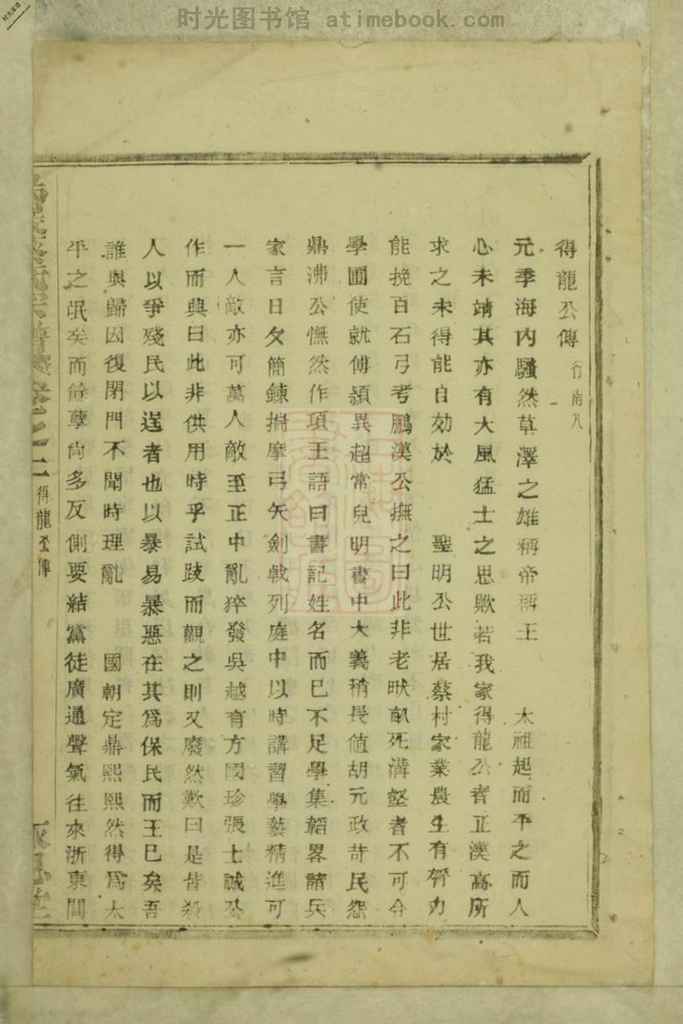 时光图书馆 atimebook.com
得龍公傳 行南八
元季海內騷然草澤之雄稱帝稱王 太祖起而平之而人
心未靖其亦有大風猛士之思歟若我家得龍公者正漢高所
求之未得能自効於 聖明公世居蔡村家業農生有膂力
能挽百石弓考鵬漢公撫之曰此非老畎畝死溝壑者不可令
學圃使就傅頴異超常兒明書中大義稍長值胡元政苛民怨
鼎沸公慨然作項王語曰書記姓名而已不足學集韜畧諸兵
家言日夕簡鍊揣摩弓矢劍戟列庭中以時講習學藝精進可
一人敵亦可萬人敵至正中亂猝發吳越有方國珍張士誠公
作而興曰此非供用時乎試跂而觀之則又廢然歎曰是皆殺
人以爭殘民以逞者也以暴易暴惡在其爲保民而王已矣吾
誰與歸因復閉門不聞時理亂 國朝定鼎熙熙然得爲太
平之氓矣而餘孽尚多反側要結黨徒廣通聲氣往來浙東閩
卷之二 得龍公傳